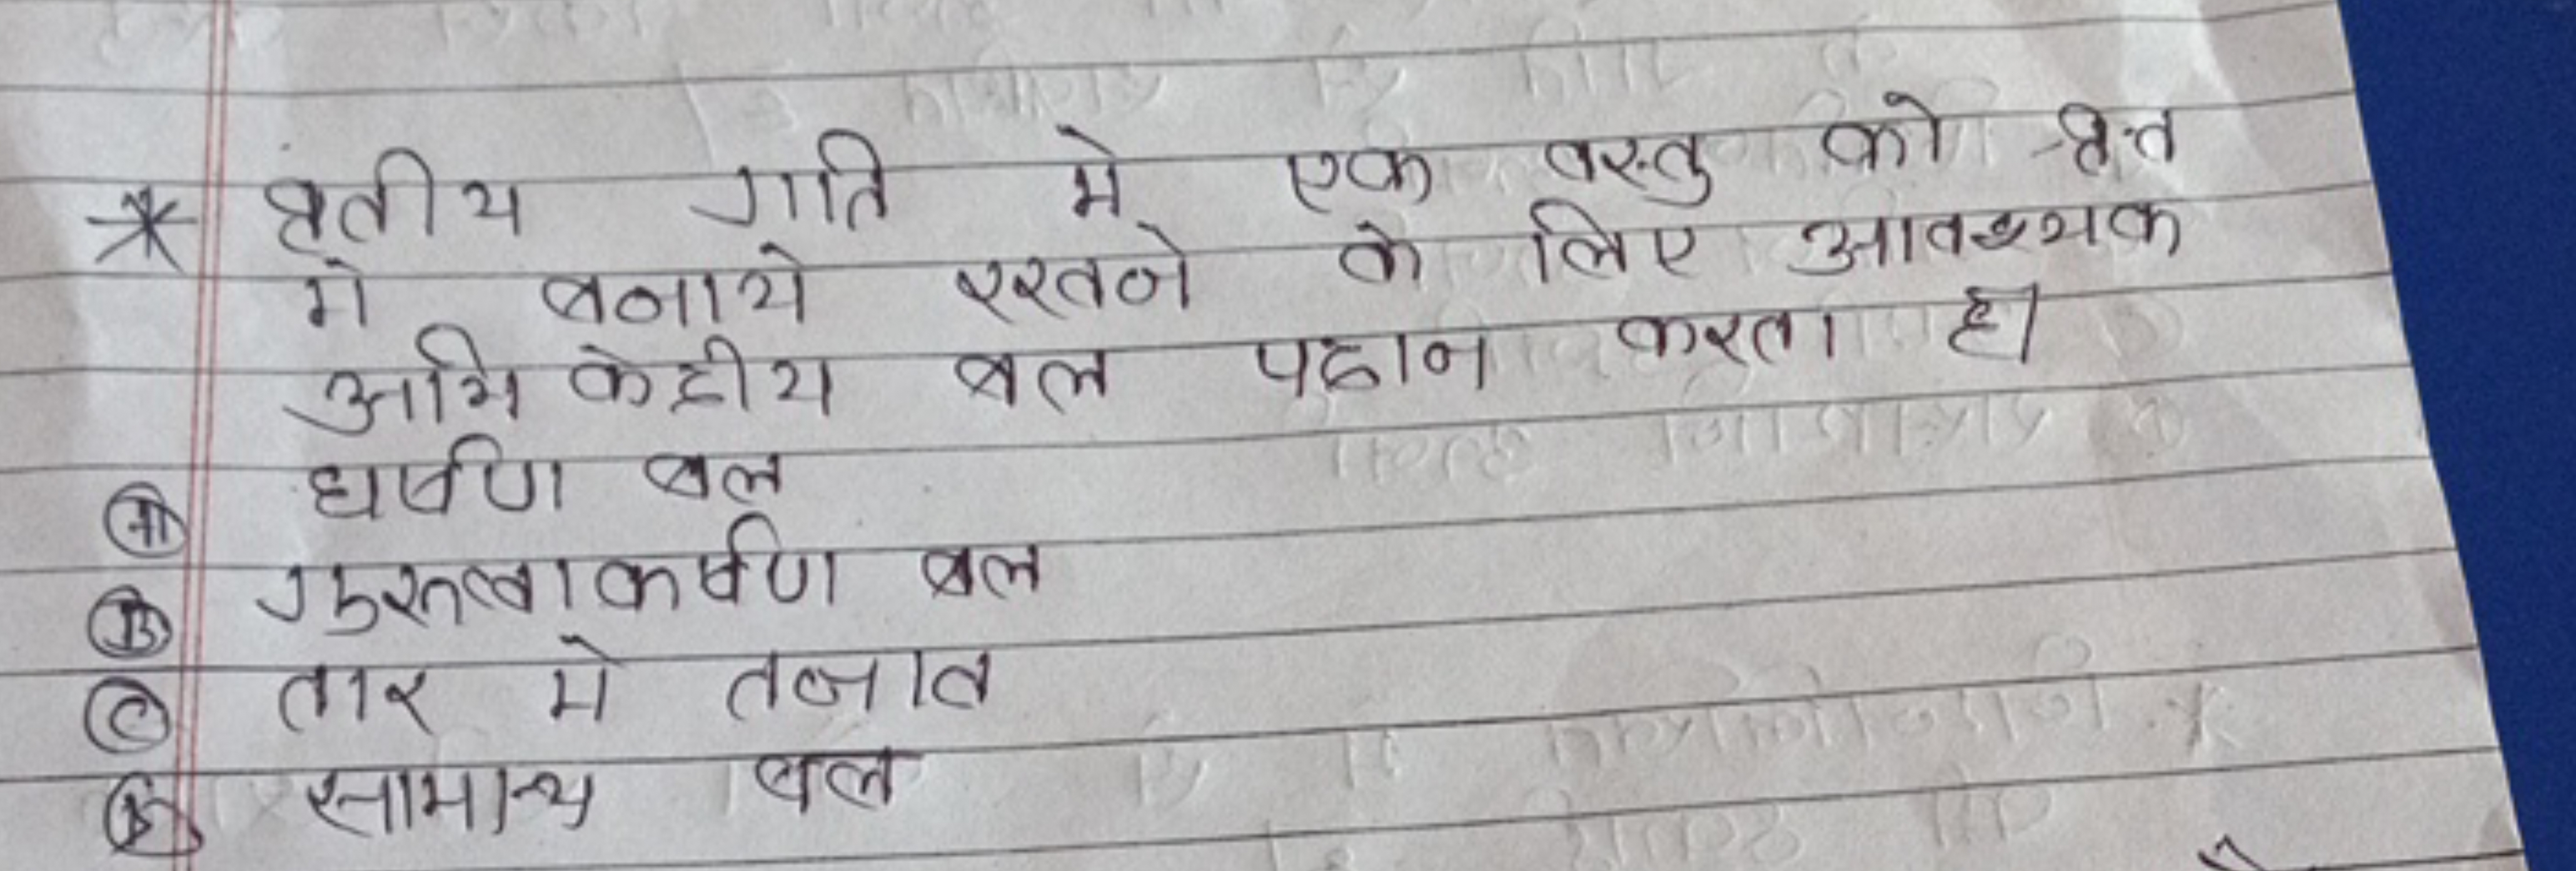 * वृतीय गति मे एक वस्तु को वृत
मे बनाये रखने के लिए आवश्यक
अभि केद्रीय बल पदान करता है।
(A) घर्षण बल
(B) गुरुत्वाकर्षण बल
(C) तार मे तनाव
सामान्य बल